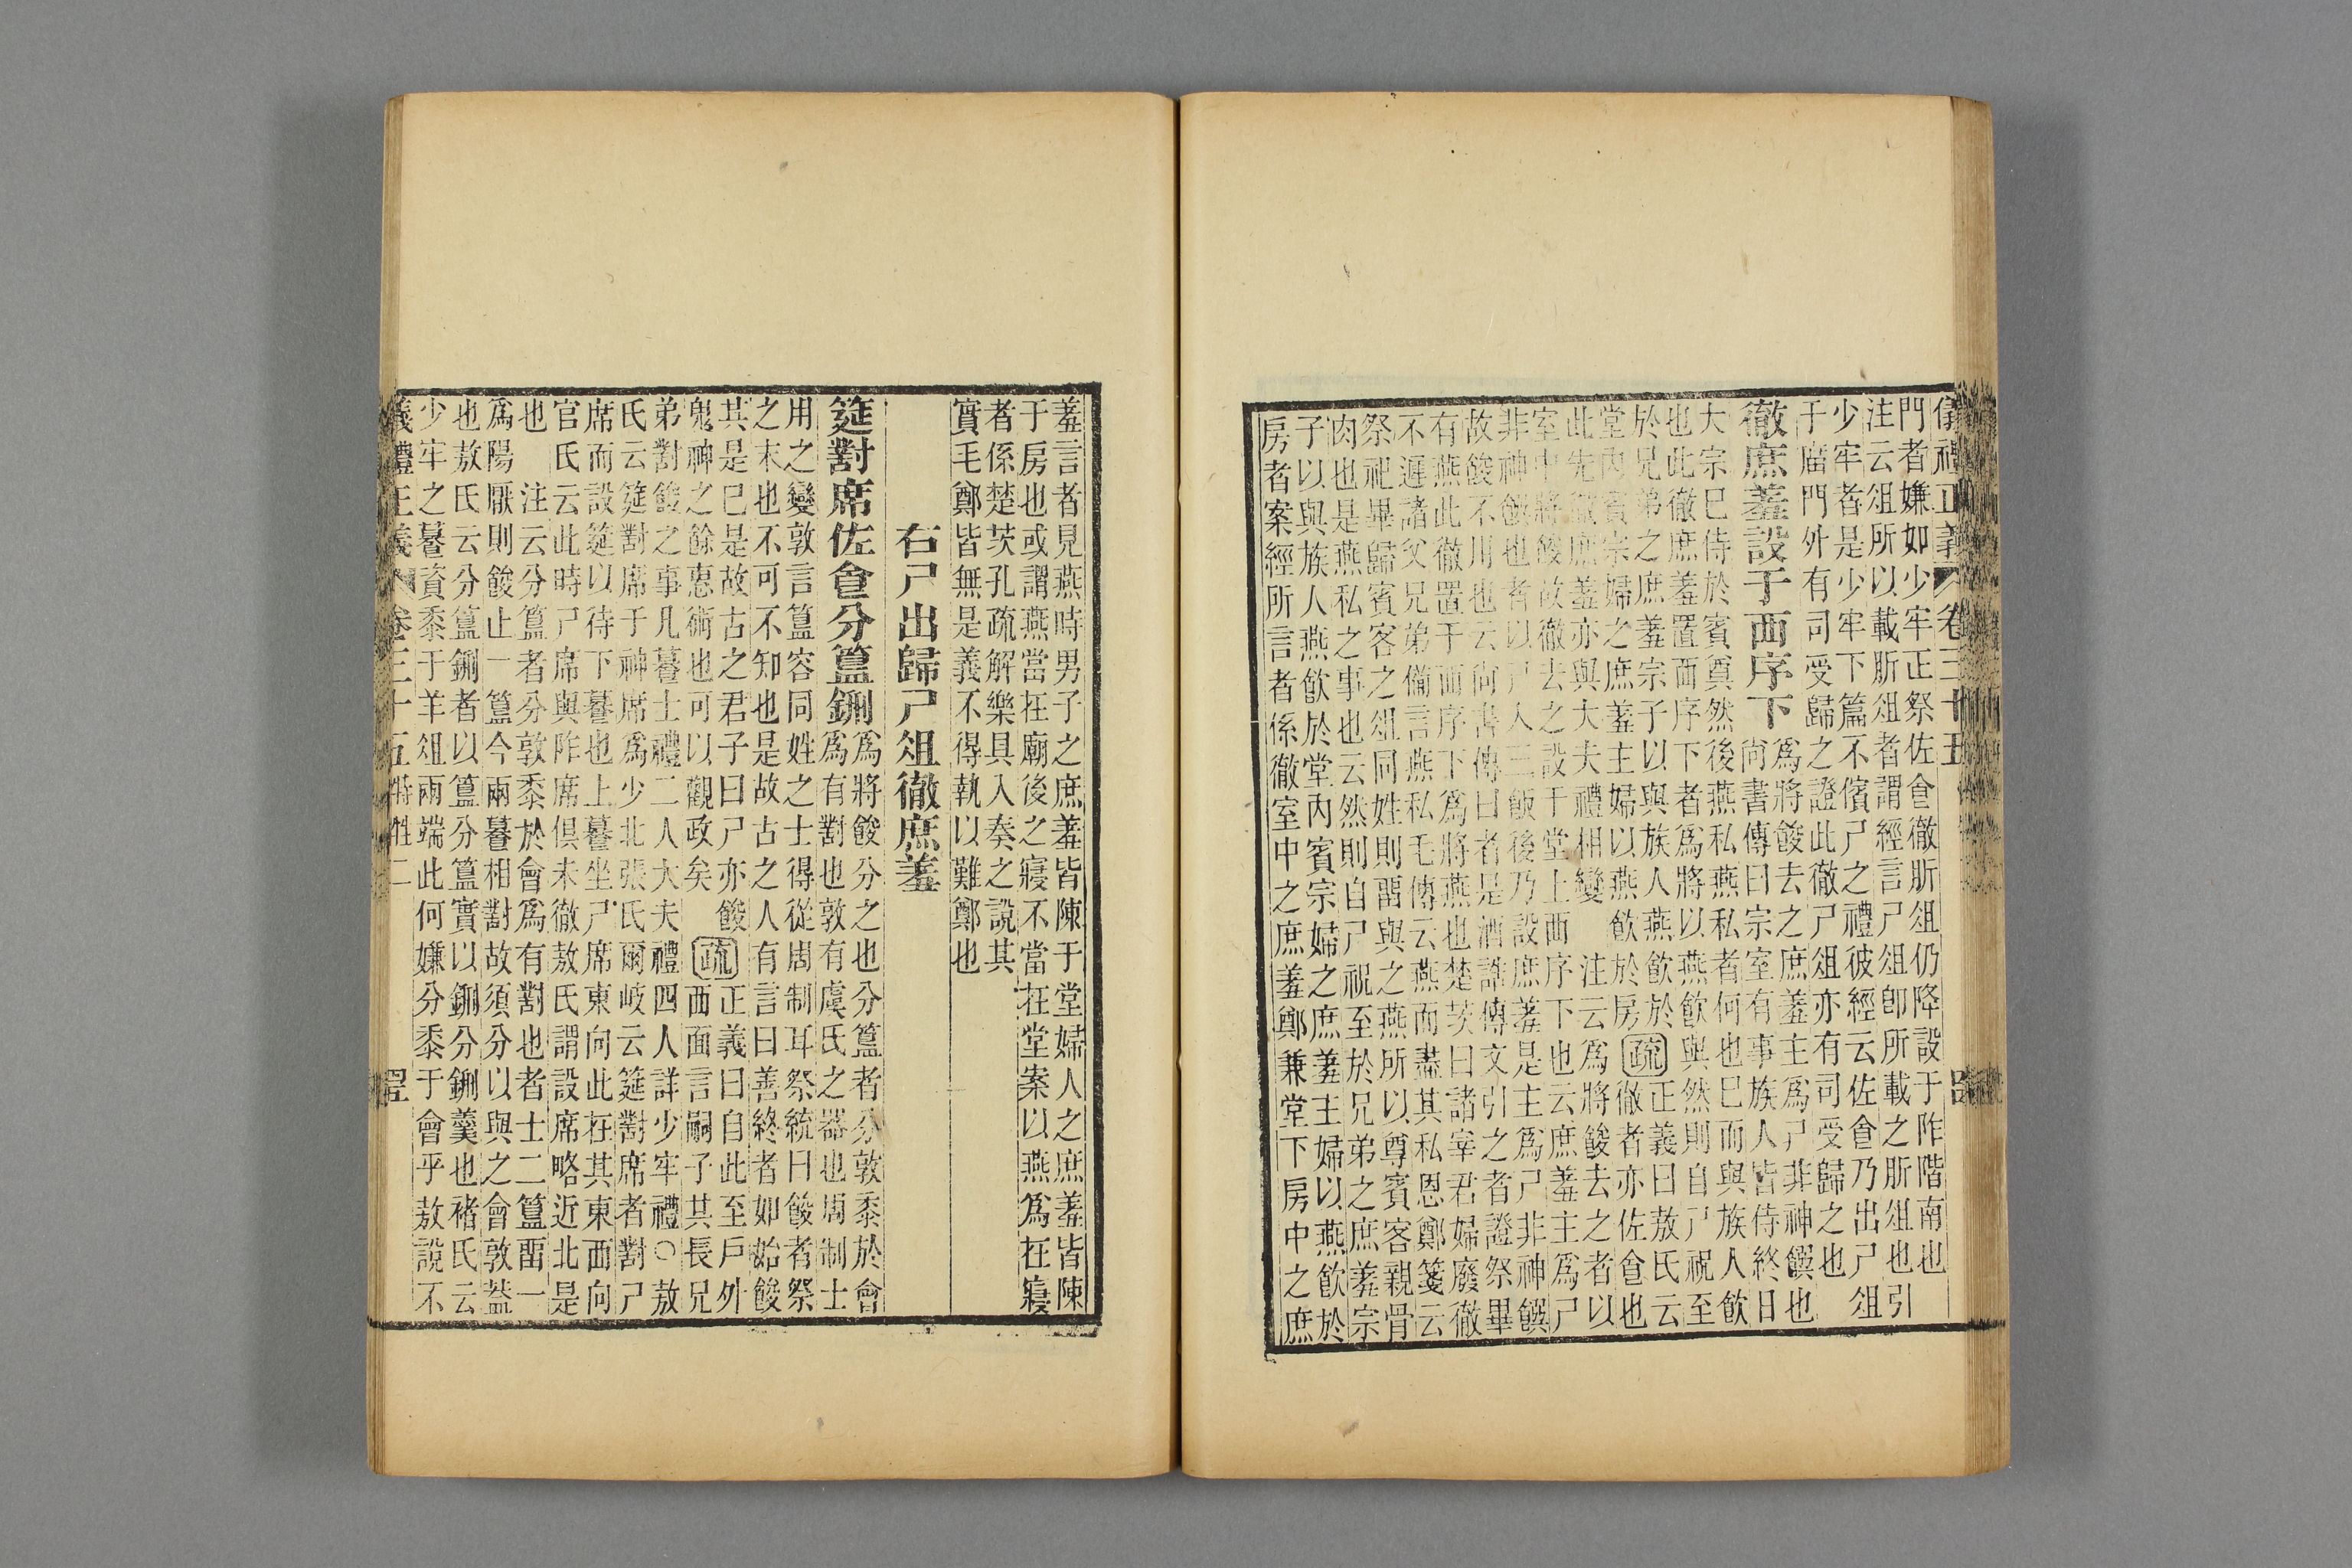 儀禮正義 卷三十五
門者嫌如少牢正祭佐食徹肵俎仍降設于阼階南也
注云俎所以載肵俎者謂經言尸俎卽所載之肵俎也引
少牢者是少牢下篇不儐尸之禮彼經云佐食乃出尸俎
于庿門外有司受歸之證此徹尸俎亦有司受歸之也
徹庶羞設于西序下
爲將餕去之庶羞主爲尸非神饌也
尚書傳曰宗室有事族人皆侍終日
大宗已侍於賓奠然後燕私燕私者何也已而與族人飲
也此徹庶羞置西序下者爲將以燕飲與然則自尸祝至
於兄弟之庶羞宗子以與族人燕飲於
堂內賓宗婦之庶羞主婦以燕飲於房
疏
正義曰敖氏云
徹者亦佐食也
此先徹庶羞亦與大夫禮相變 注云爲將餕去之者以
室中將餕故徹去之設于堂上西序下也云庶羞主爲尸
非神饌也者以尸人三飯後乃設庶羞是主爲尸非神饌
故餕不用也云尚書傳曰者是酒誥傳文引之者證祭畢
有燕此徹置于西序下爲將燕也楚茨曰諸宰君婦廢徹
不遲諸父兄弟備言燕私毛傳云燕而盡其私恩鄭箋云
祭祀畢歸賓客之俎同姓則畱與之燕所以尊賓客親骨
肉也是燕私之事也云然則自尸祝至於兄弟之庶羞宗
子以與族人燕飲於堂內賓宗婦之庶羞主婦以燕飲於
房者案經所言者係徹室中之庶羞鄭兼堂下房中之庶
羞言者見燕時男子之庶羞皆陳于堂婦人之庶羞皆陳
于房也或謂燕當在廟後之寢不當在堂案以燕爲在寢
者係楚茨孔疏解樂具入奏之說其
實毛鄭皆無是義不得執以難鄭也
右尸出歸尸俎徹庶羞
筵對席佐食分簋鉶
爲將餕分之也分簋者分敦黍於會
爲有對也敦有虞氏之器也周制士
用之變敦言簋容同姓之士得從周制耳祭統曰餕者祭
之末也不可不知也是故古之人有言曰善終者如始餕
其是已是故古之君子曰尸亦餕
鬼神之餘惠術也可以觀政矣
疏
正義曰自此至戶外
西面言嗣子其長兄
弟對餕之事凡䕪士禮二人大夫禮四人詳少牢禮○敖
氏云筵對席于神席爲少北張氏爾岐云筵對席者對尸
席而設筵以待下䕪也上䕪坐尸席東向此在其東西向
官氏云此時尸席與阼席俱未徹敖氏謂設席略近北是
也 注云分簋者分敦黍於會爲有對也者士二簋畱一
爲陽厭則餕止一簋今兩䕪相對故須分以與之會敦葢
也敖氏云分簋鉶者以簋分簋實以鉶分鉶羹也褚氏云
少牢之䕪資黍于羊俎兩端此何嫌分黍于會乎敖說不
義禮正義 卷三十五 特牲二